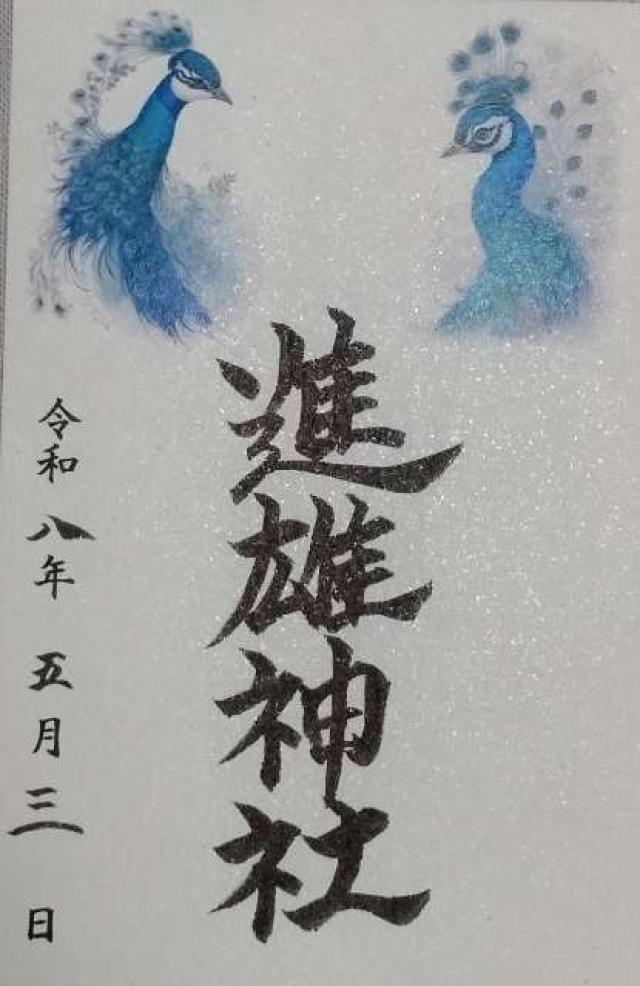 進雄神社
令和八年五月三日